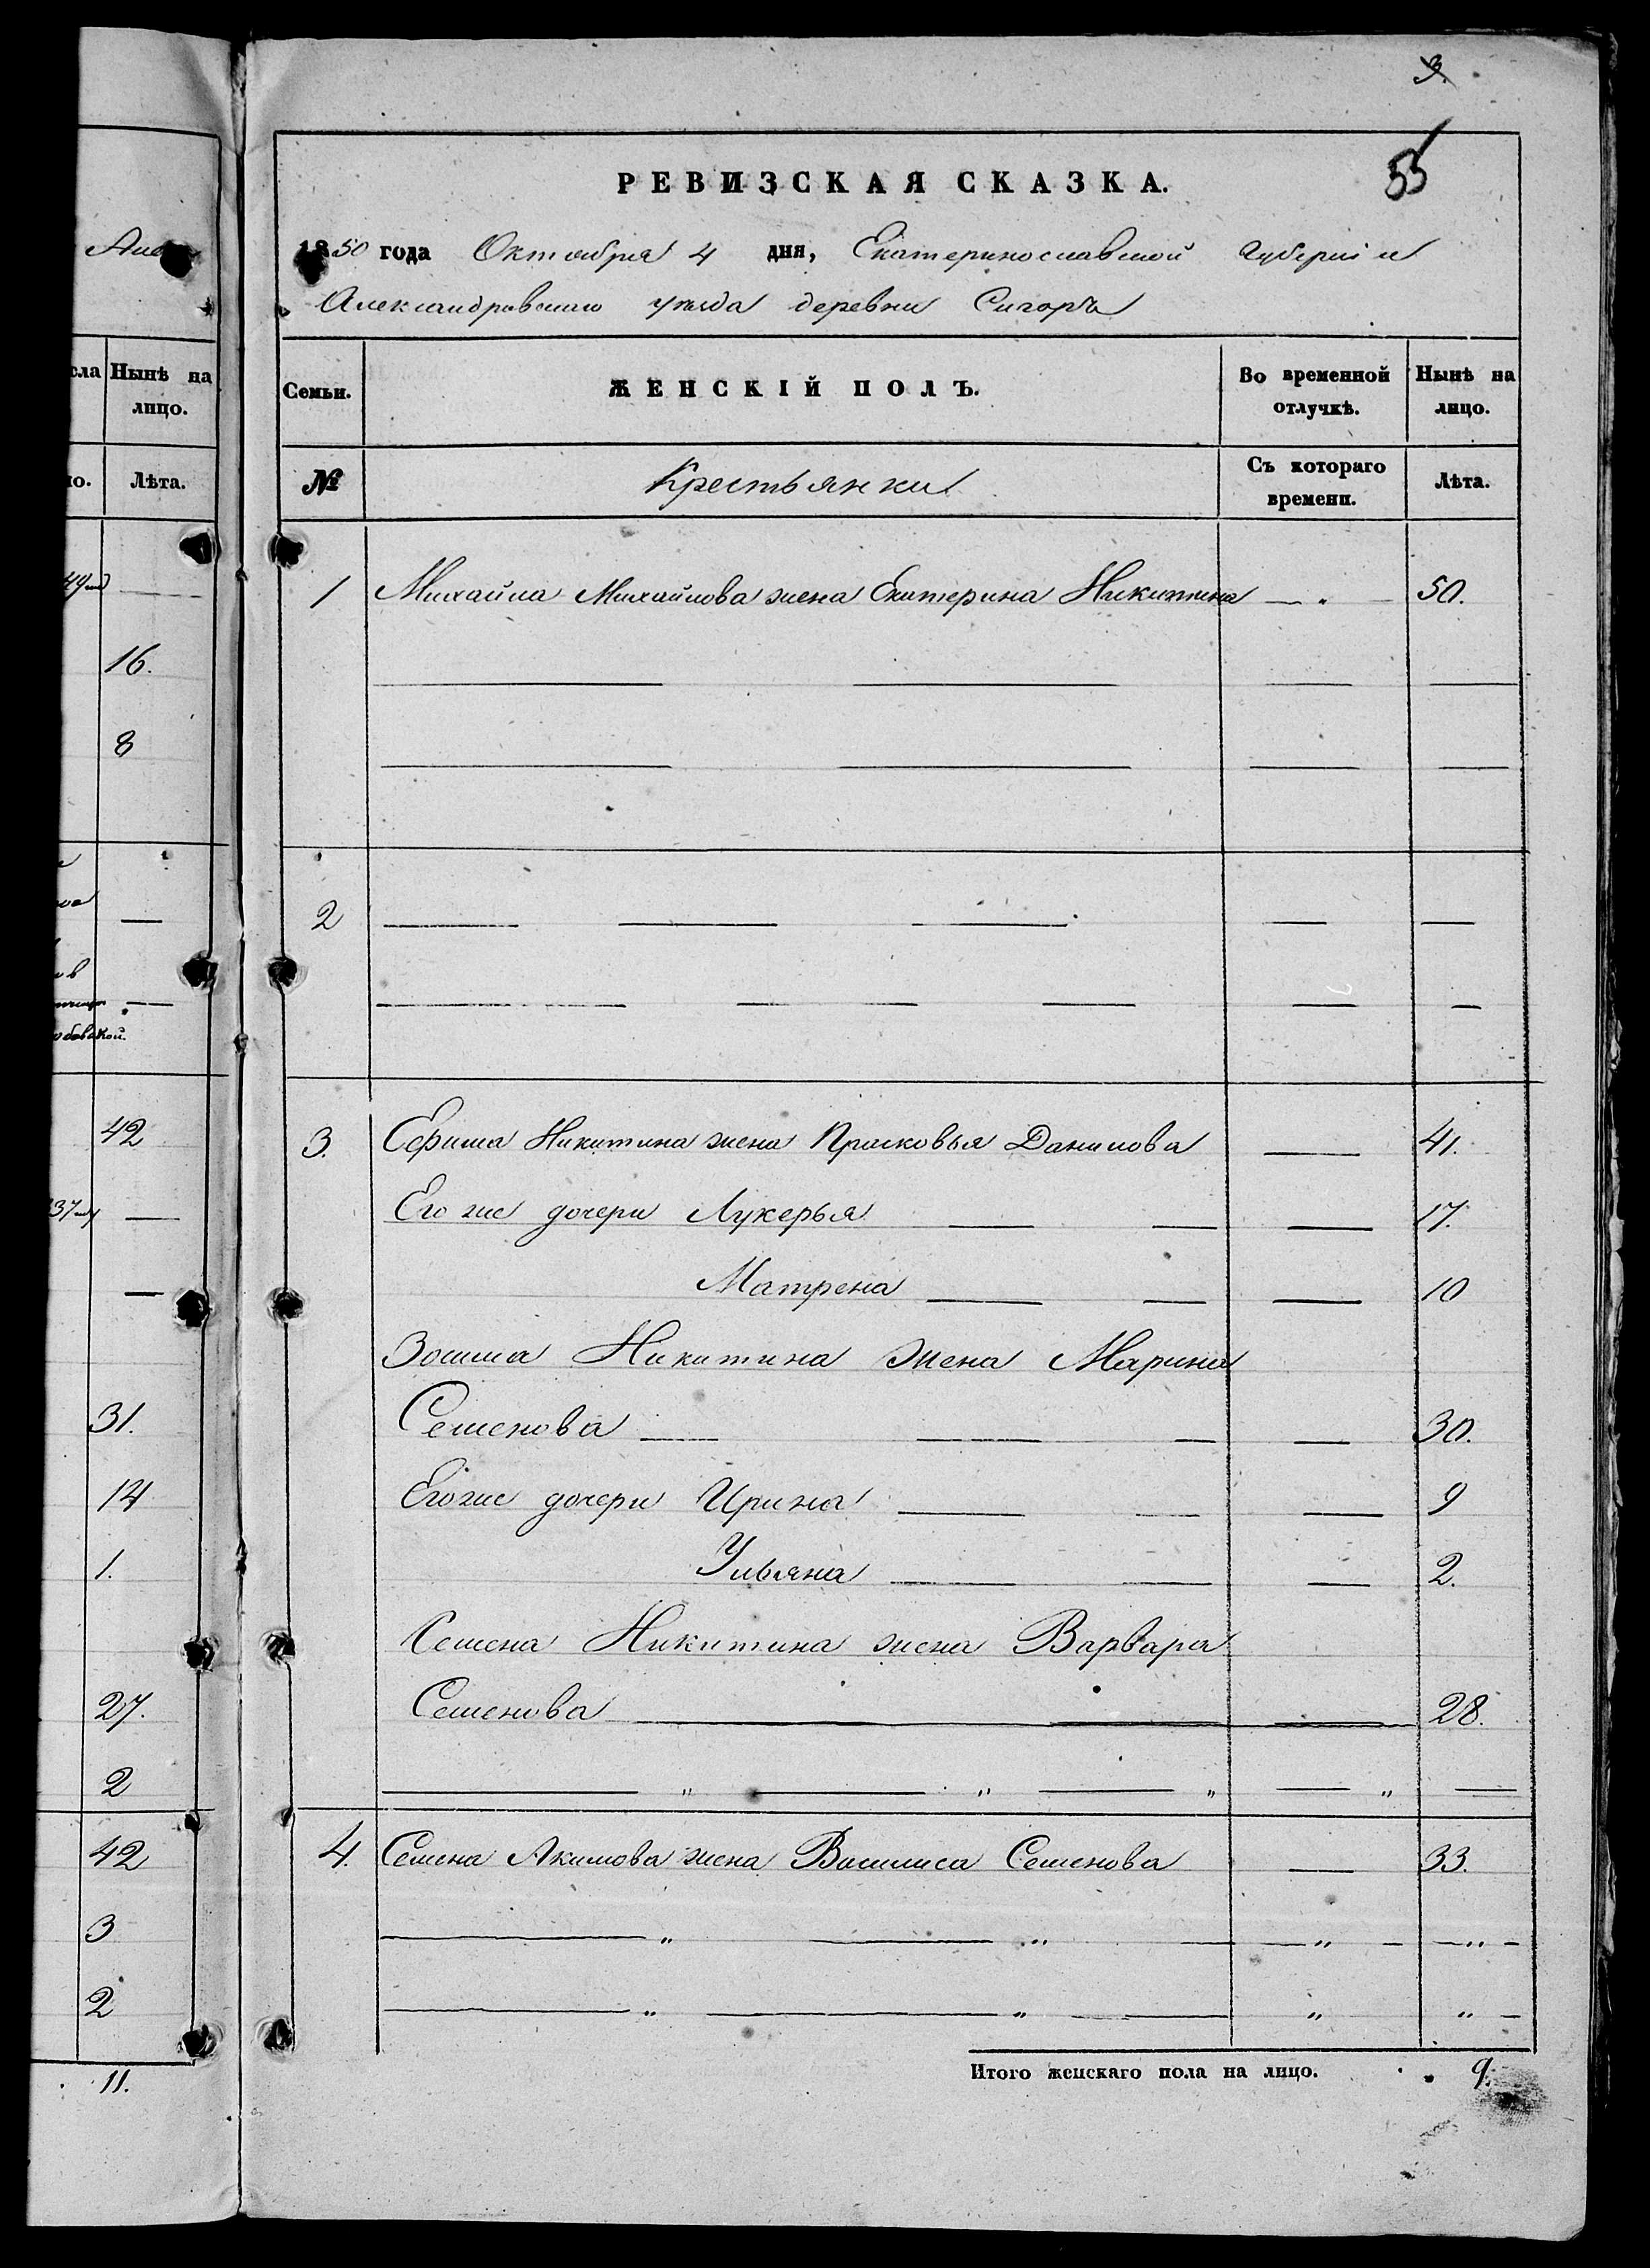 3.
55
РЕВИЗСКАЯ СКАЗКА.
1850 года Октября 4 дня, Екатеринославской губерніи
Александровскаго уѣзда деревни
Семьи. ЖЕНСКІЙ ПОЛЪ. Во временной отлучкѣ. Нынѣ на лицо.
№ Крестьянки Съ котораго времени. Лѣта.
1 Михайла Михайлова жена Екатерина Никитина — 50.
2
3. Ефима Никитина жена Прасковья Данилова — 41.
Его же дочери Лукерья — 17.
Матрена — 10
Никитина жена Марина
Семенова — 30.
Его же дочери Ирина — 9
Ульяна — 2.
Семена Никитина жена Варвара
Семенова — 28.
4. Семена Акимова жена Василиса Семенова — 33.
Итого женскаго пола на лицо. 9.
Нынѣ на
лицо.
Лѣта.
16.
8
42
31.
14
1.
27.
2
42
3
2
11.